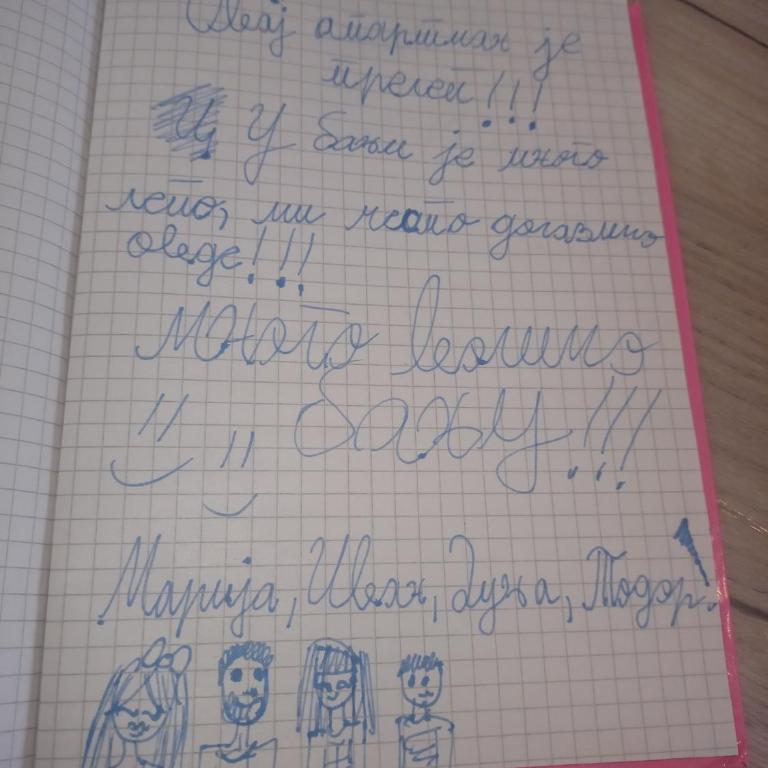 Овај апартман је
прелеп!!!
У бањи је много
лепо, ми често долазимо
овде!!!
Много волимо
бању!!!
Марија, Иван, Дуња, Тодор.